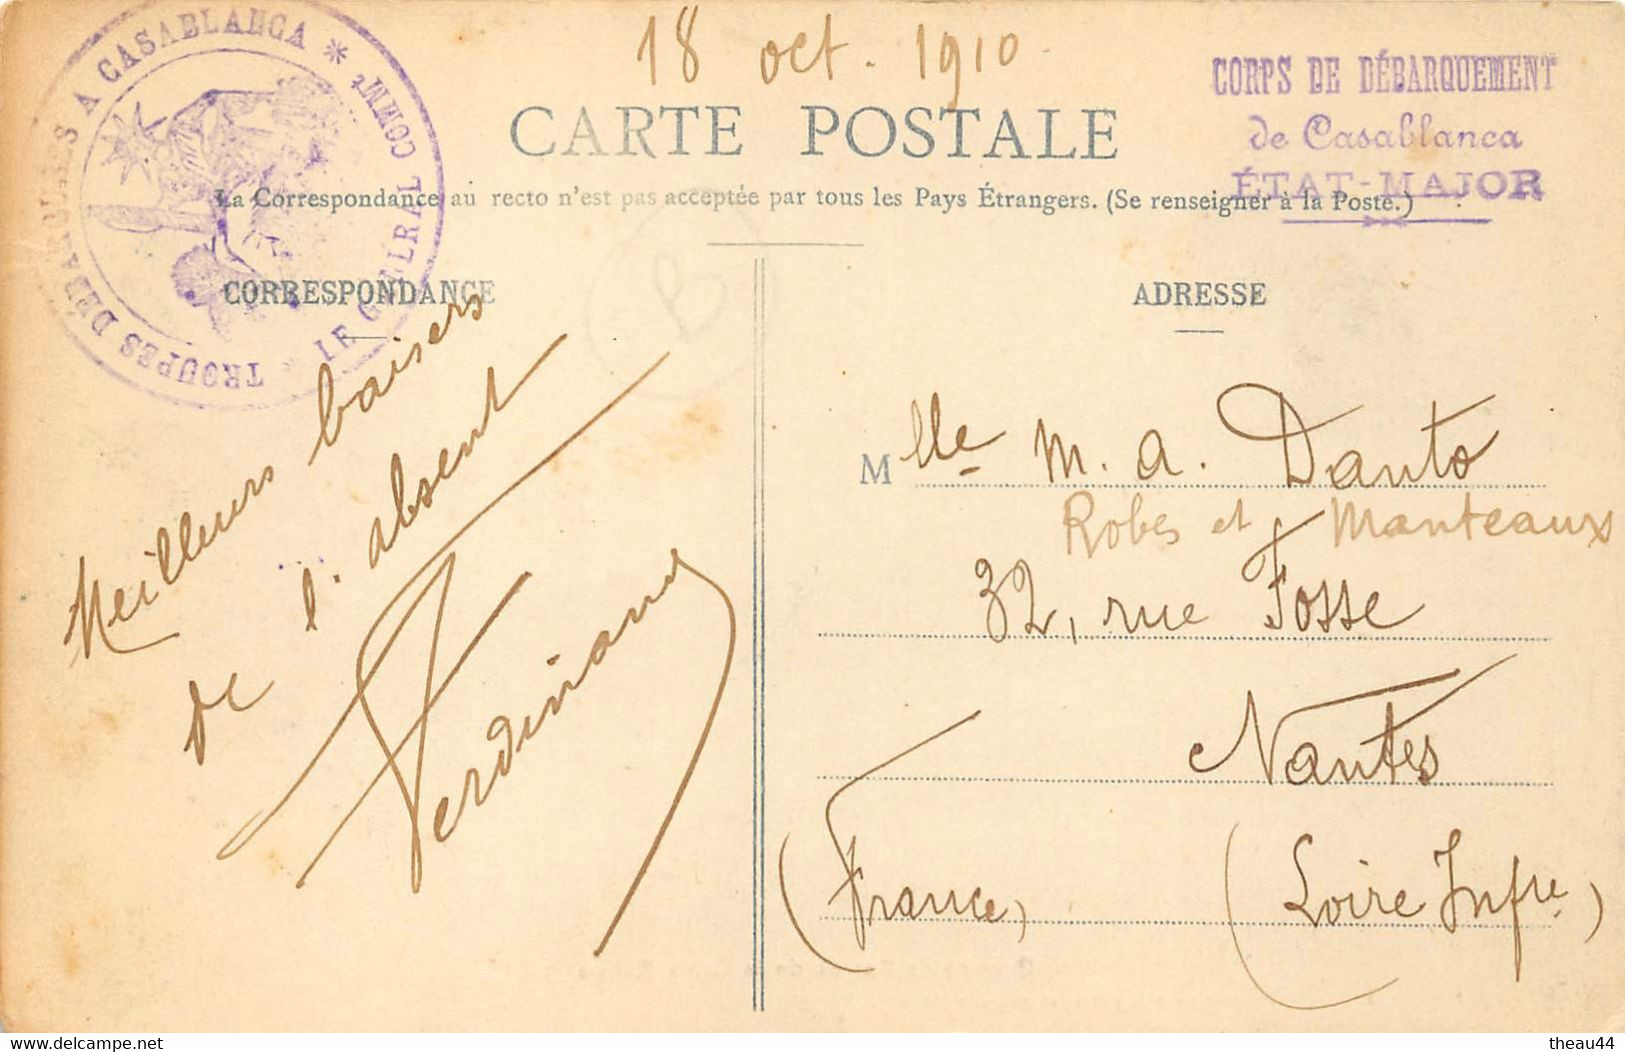 18 oct. 1910
TROUPES DÉBARQUÉES A CASABLANCA * LE GÉNÉRAL COMMt *
CORPS DE DÉBARQUEMENT
de Casablanca
ÉTAT-MAJOR
CARTE POSTALE
La Correspondance au recto n'est pas acceptée par tous les Pays Étrangers. (Se renseigner à la Poste.)
CORRESPONDANCE
Meilleurs baisers
de l'absent
Ferdinand
ADRESSE
Mlle M. A. Danto
Robes et Manteaux
32, rue Fosse
Nantes
(France) (Loire Infre)
www.delcampe.net
theau44